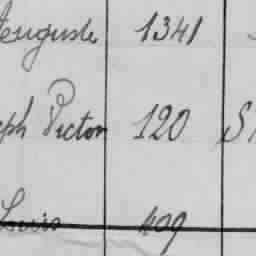 Auguste 1341
eph Victor 120 S
Louis 409